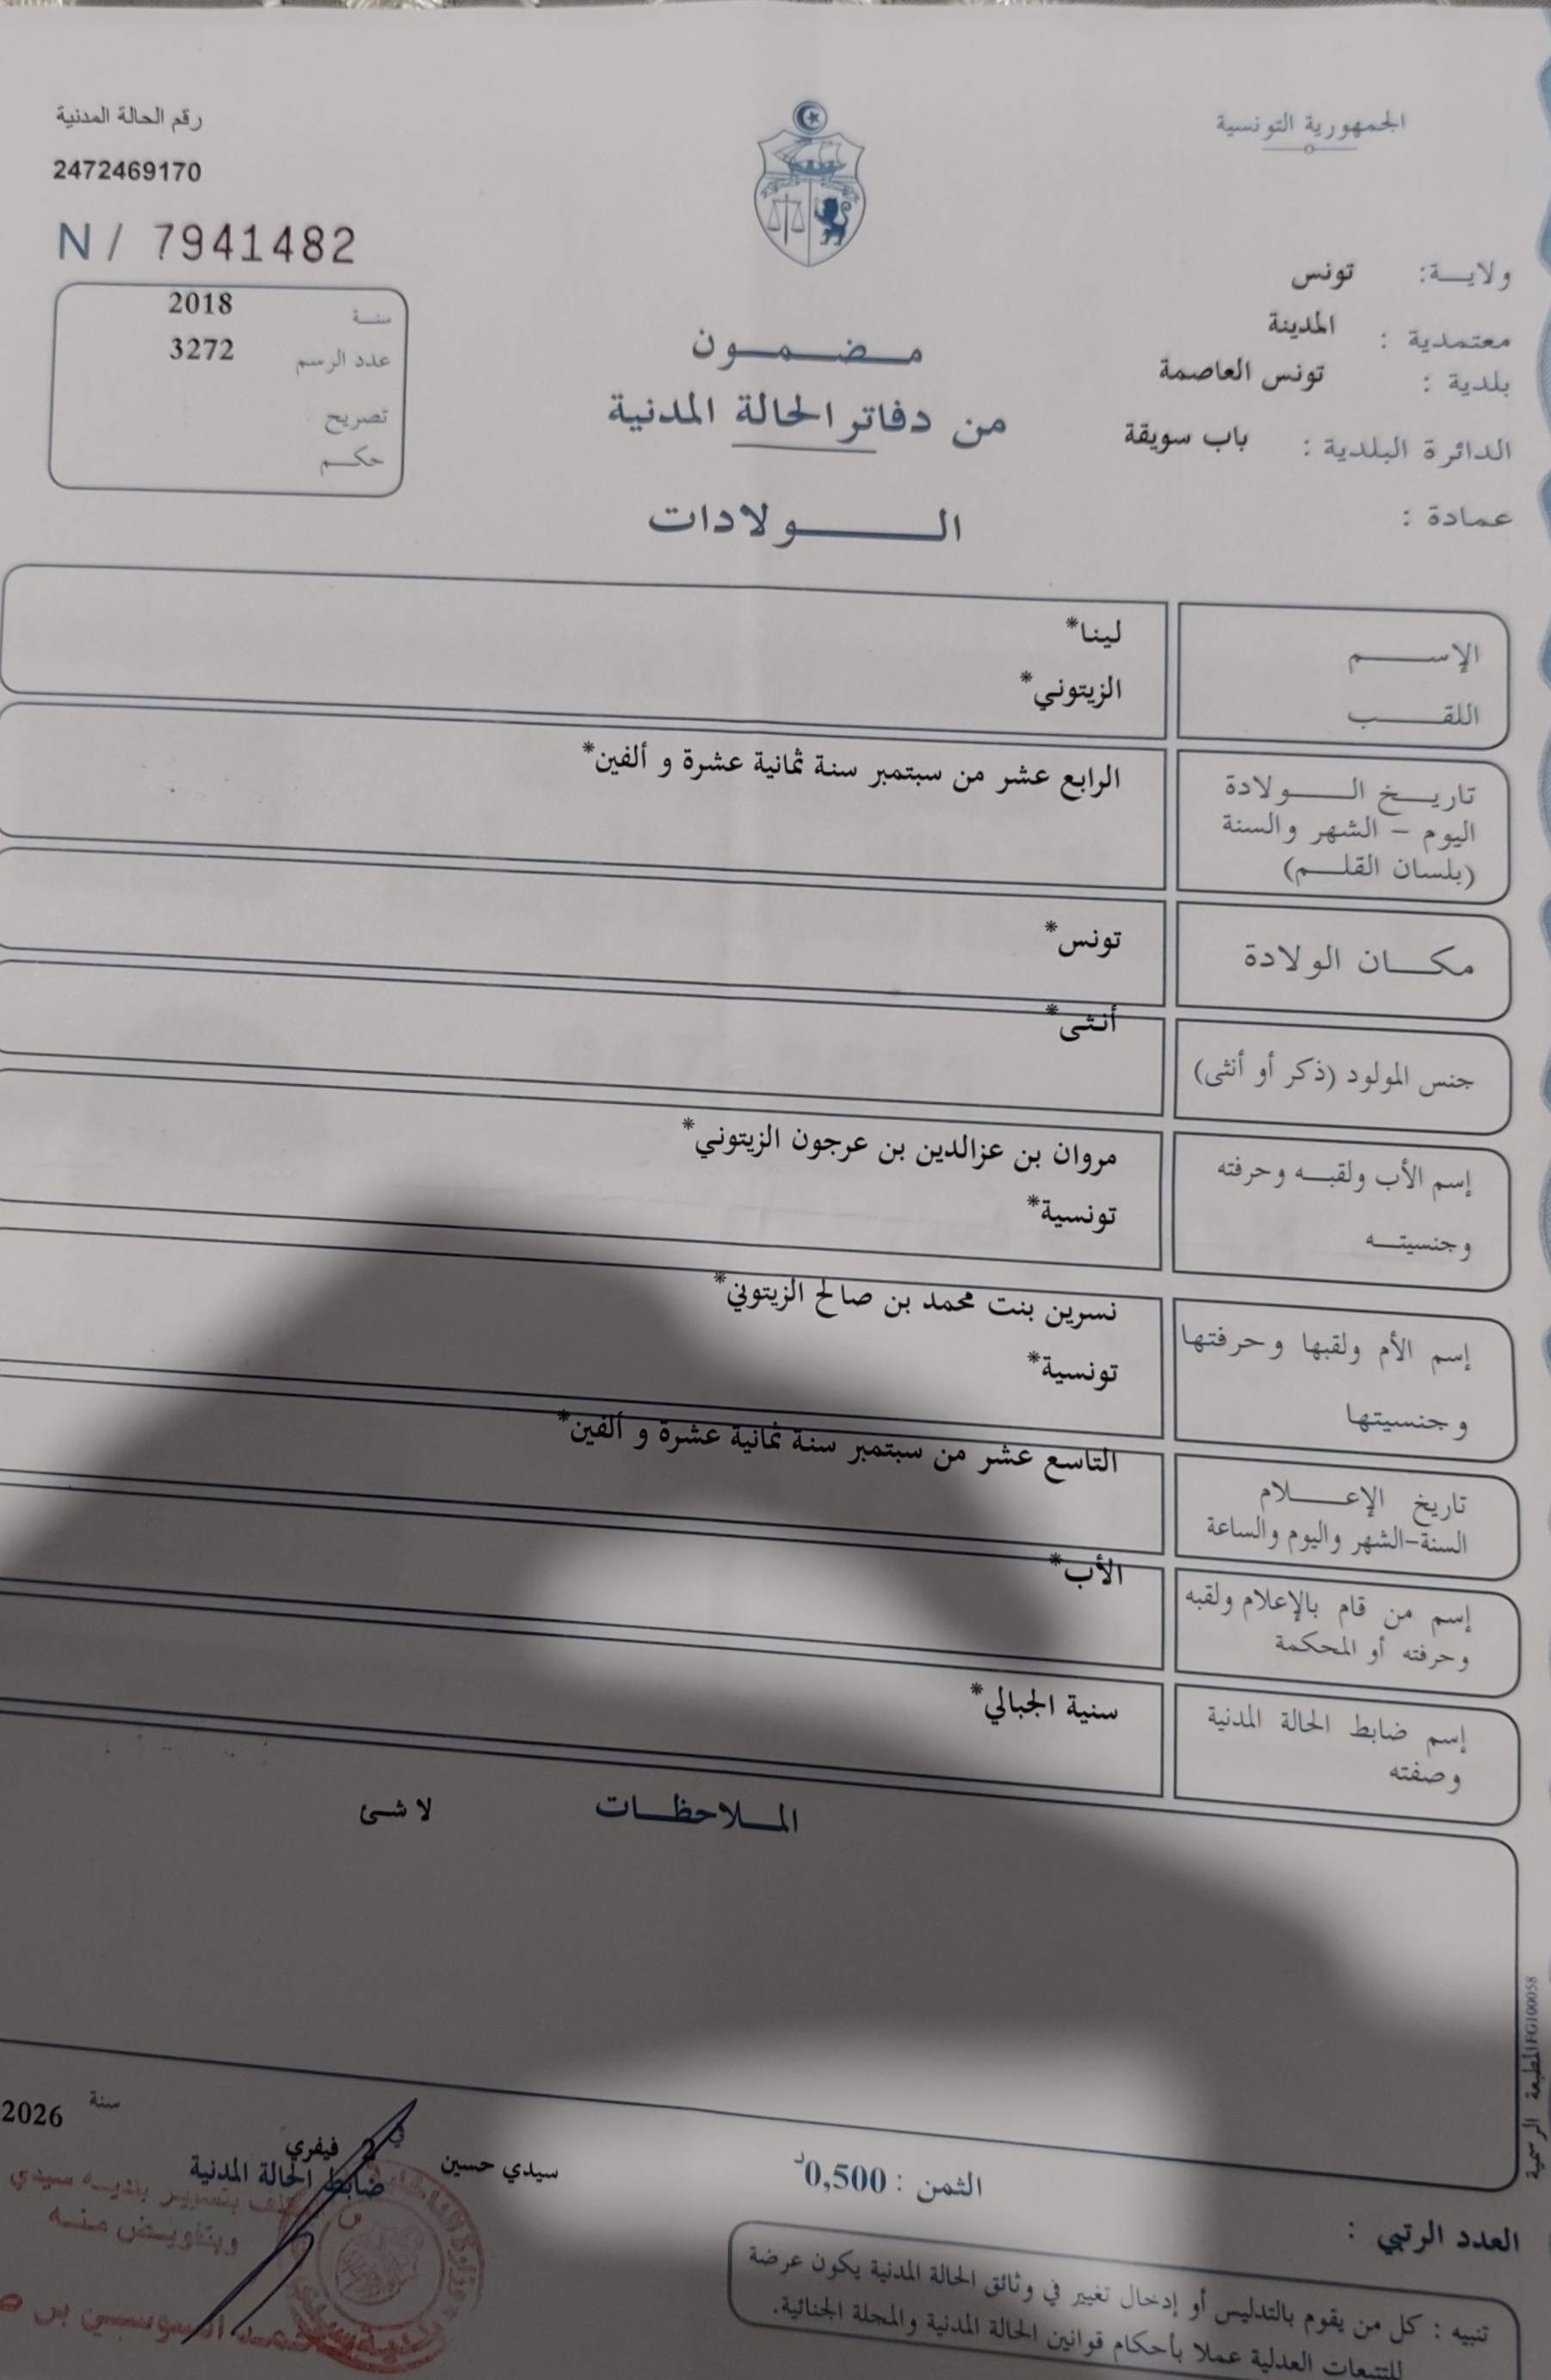 الجمهورية التونسية
رقم الحالة المدنية
2472469170
N / 7941482
ولايــة: تونس
معتمدية : المدينة
بلدية : تونس العاصمة
الدائرة البلدية : باب سويقة
عمادة :
سنة 2018
عدد الرسم 3272
تصريح
حكم
مضمون
من دفاتر الحالة المدنية
الولادات
الإسم لينا*
اللقب الزيتوني*
تاريخ الولادة
اليوم - الشهر والسنة
(بلسان القلم)
الرابع عشر من سبتمبر سنة ثمانية عشرة و ألفين*
مكان الولادة تونس*
جنس المولود (ذكر أو أنثى) أنثى*
إسم الأب ولقبه وحرفته مروان بن عزالدين بن عرجون الزيتوني*
وجنسيته تونسية*
إسم الأم ولقبها وحرفتها نسرين بنت محمد بن صالح الزيتوني*
وجنسيتها تونسية*
تاريخ الإعلام
السنة-الشهر واليوم والساعة
التاسع عشر من سبتمبر سنة ثمانية عشرة و ألفين*
إسم من قام بالإعلام ولقبه
وحرفته أو المحكمة
الأب*
إسم ضابط الحالة المدنية
وصفته
سنية الجبالي*
الملاحظات لا شئ
المطبعة الرسمية IFG100058
سيدي حسين في 2 فيفري سنة 2026
ضابط الحالة المدنية
بتسيير بلدية سيدي
وبتفويض منه
السوسي بن
الثمن : 0,500د
العدد الرتبي :
تنبيه : كل من يقوم بالتدليس أو إدخال تغيير في وثائق الحالة المدنية يكون عرضة
للتتبعات العدلية عملا بأحكام قوانين الحالة المدنية والمجلة الجنائية.